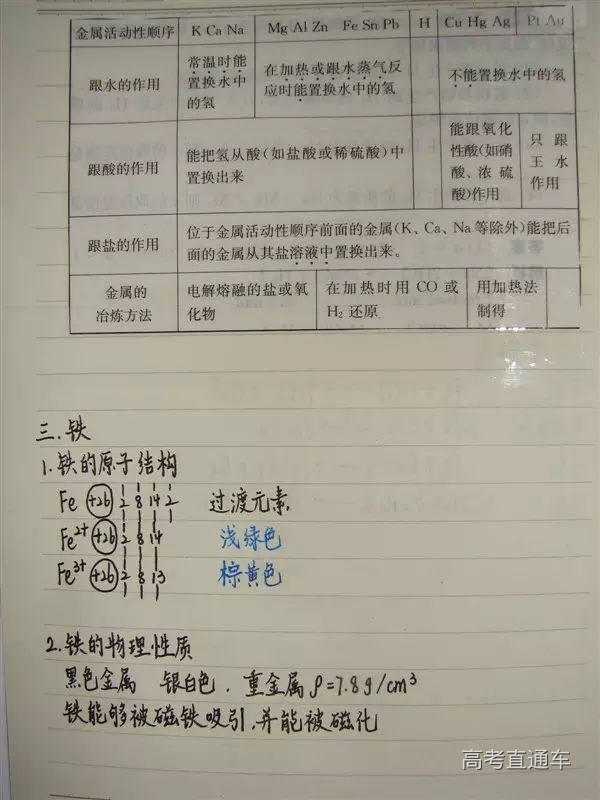 金属活动性顺序 K Ca Na Mg Al Zn Fe Sn Pb H Cu Hg Ag Pt Au
跟水的作用
常温时能
置换水中
的氢
在加热或跟水蒸气反
应时能置换水中的氢
不能置换水中的氢
跟酸的作用
能把氢从酸(如盐酸或稀硫酸)中
置换出来
能跟氧化
性酸(如硝
酸、浓硫
酸)作用
只跟
王水
作用
跟盐的作用
位于金属活动性顺序前面的金属(K、Ca、Na等除外)能把后
面的金属从其盐溶液中置换出来。
金属的
冶炼方法
电解熔融的盐或氧
化物
在加热时用 CO 或
H₂ 还原
用加热法
制得
三.铁
1.铁的原子结构
Fe +26 2 8 14 2 过渡元素.
Fe²⁺ +26 2 8 14 浅绿色
Fe³⁺ +26 2 8 13 棕黄色
2.铁的物理性质
黑色金属 银白色. 重金属 ρ=7.8g/cm³
铁能够被磁铁吸引,并能被磁化
高考直通车